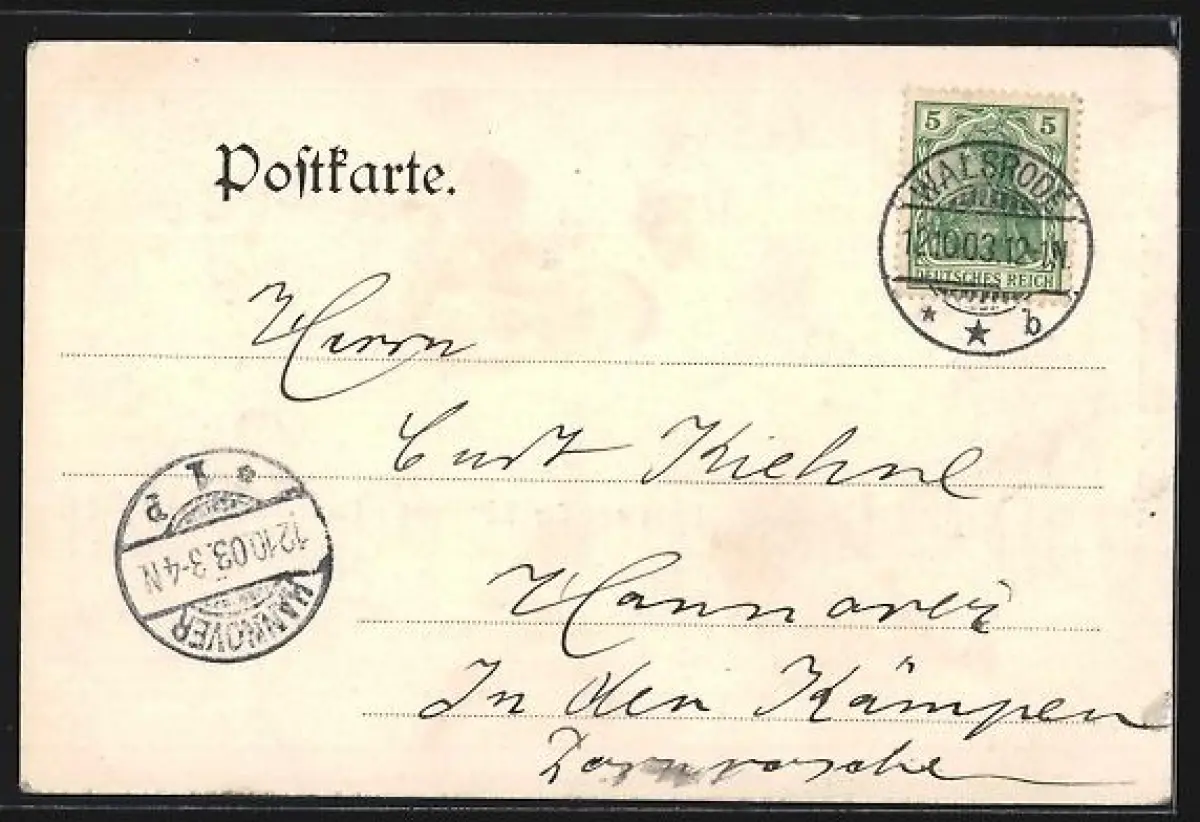 Postkarte.
5 5
WALSRODE
12.10.03.12-1N
DEUTSCHES REICH
* ★ b
Herrn
Curt Kiehne
Hannover
In den Kämpen
1
12.10.03.3-4N
HANNOVER